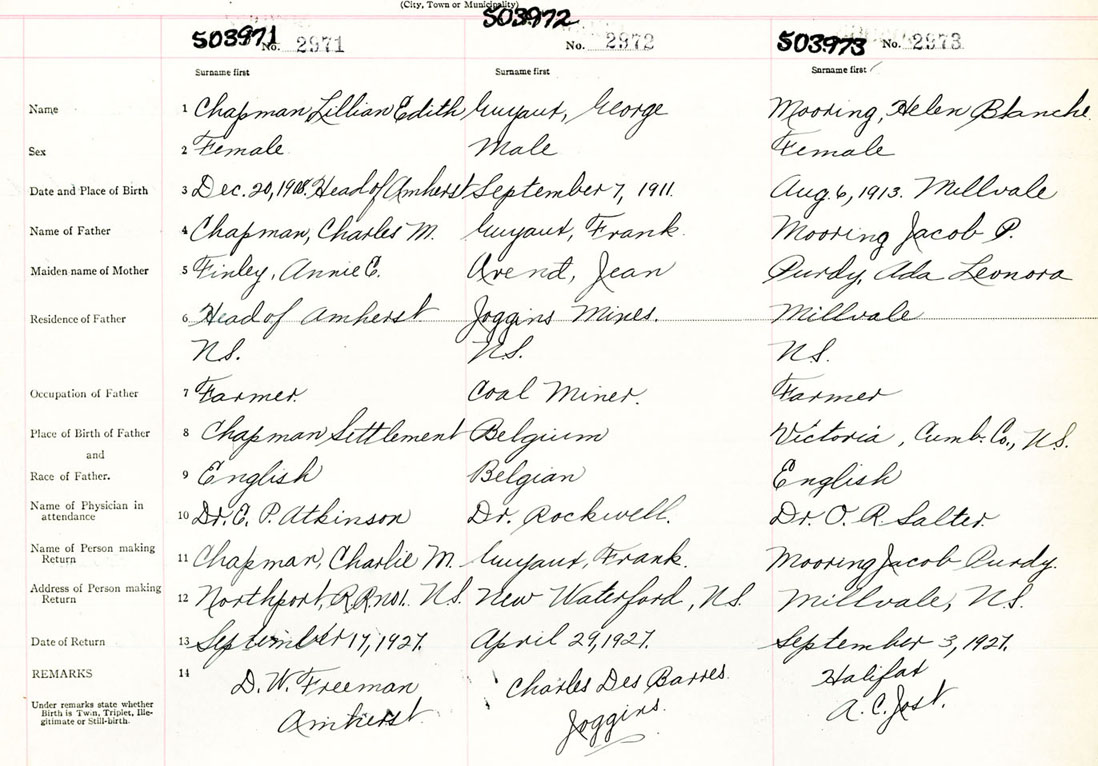 (City, Town or Municipality)
503971 No. 2971 503972 No. 2972 503973 No. 2973
Surname first Surname first Surname first
Name 1 Chapman, Lillian Edith Guyaut, George Mooring, Helen Blanche
Sex 2 Female Male Female
Date and Place of Birth 3 Dec. 20, Head of Amherst September 7, 1911. Aug. 6, 1913. Millvale
Name of Father 4 Chapman, Charles M. Guyaut, Frank Mooring Jacob P.
Maiden name of Mother 5 Finley, Annie E. Arend, Jean Purdy, Ada Leonora
Residence of Father 6 Head of Amherst Joggins Mines. Millvale
N.S. N.S. N.S.
Occupation of Father 7 Farmer. Coal Miner. Farmer
Place of Birth of Father 8 Chapman Settlement Belgium Victoria, Cumb. Co., N.S.
and
Race of Father. 9 English Belgian English
Name of Physician in
attendance 10 Dr. E. P. Atkinson Dr. Rockwell. Dr. O. R. Salter.
Name of Person making
Return 11 Chapman, Charlie M. Guyaut, Frank. Mooring Jacob Purdy.
Address of Person making
Return 12 Northport, R.R. no 1. N.S. New Waterford, N.S. Millvale, N.S.
Date of Return 13 September 17, 1927. April 29, 1927. September 3, 1927.
REMARKS 14 D. W. Freeman Charles Des Barres Halifax
Under remarks state whether
Birth is Twin, Triplet, Ille-
gitimate or Still-birth. Amherst. Joggins. A. C. Jost.